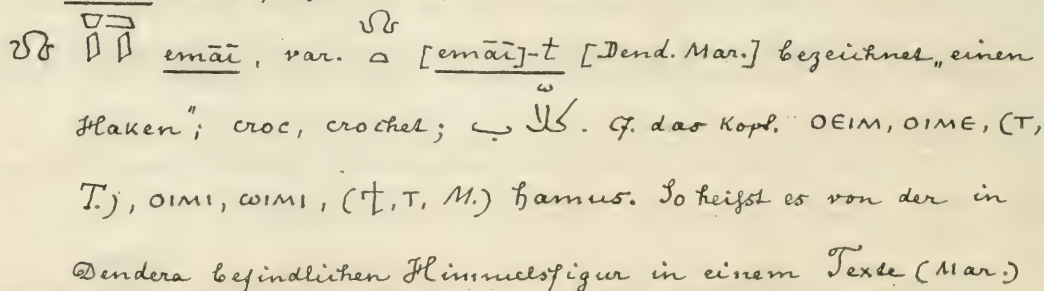 emāī, var. [emāī]-t [Dend. Mar.] bezeichnet „einen
Haken"; croc, crochet; كلاّب. Cf. das Kopt. ⲟⲉⲓⲙ, ⲟⲓⲙⲉ, (ⲧ,
T.), ⲟⲓⲙⲓ, ⲱⲓⲙⲓ, (ϯ, ⲧ, M.) hamus. So heifst es von der in
Dendera befindlichen Himmelsfigur in einem Texte (Mar.)